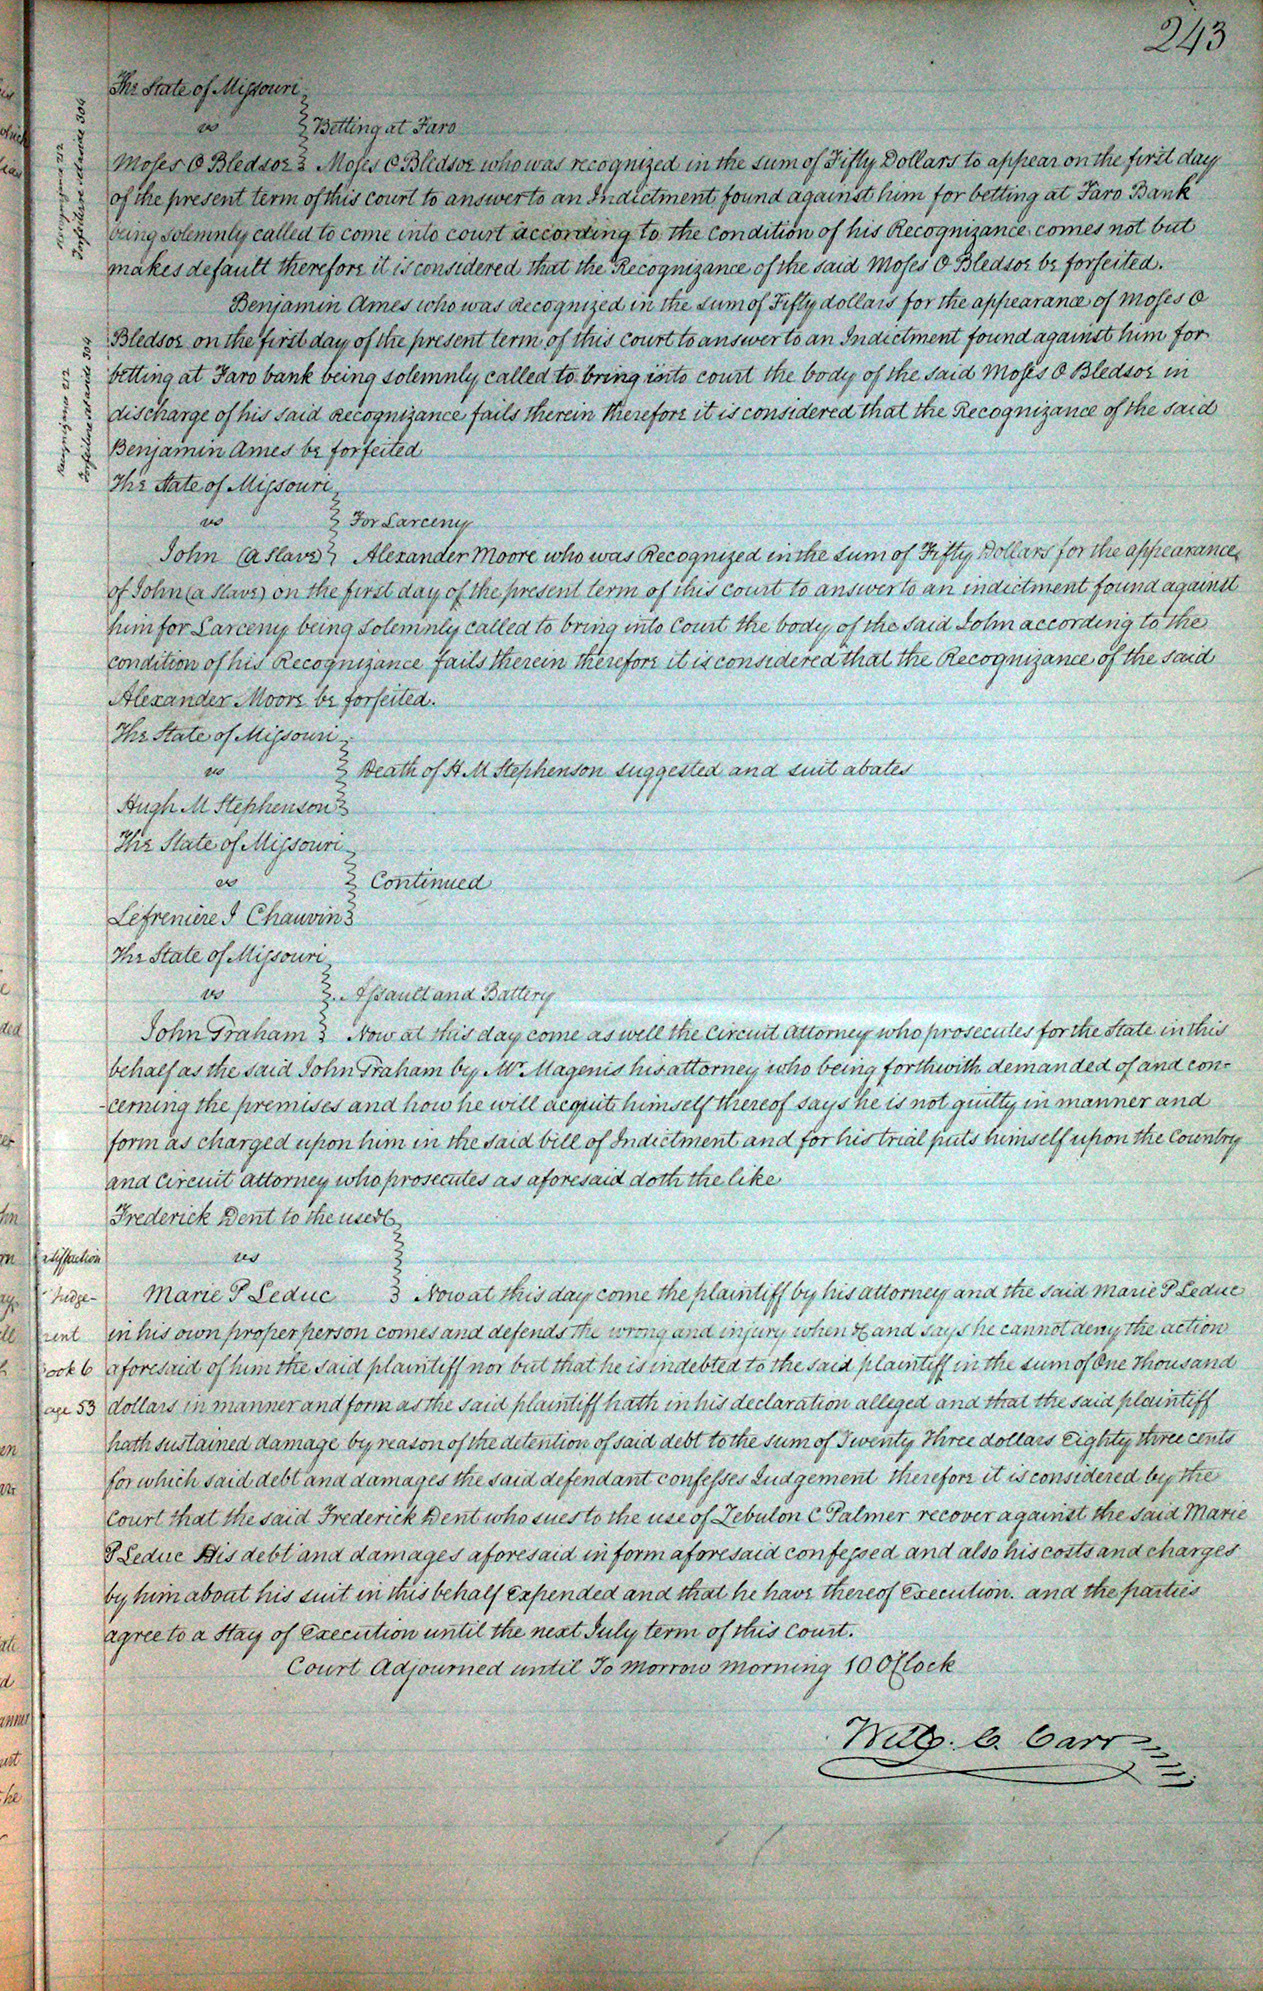 243
The State of Missouri
vs
Betting at Faro
Moses O Bledsoe Moses O Bledsoe who was recognized in the sum of Fifty Dollars to appear on the first day
of the present term of this court to answer to an Indictment found against him for betting at Faro Bank
being solemnly called to come into court according to the Condition of his Recognizance comes not but
makes default therefore it is considered that the Recognizance of the said Moses O Bledsoe be forfeited.
Recognizance 212
Forfeiture set aside 304
Benjamin Ames who was Recognized in the sum of Fifty dollars for the appearance of Moses O
Bledsoe on the first day of the present term of this court to answer to an Indictment found against him for
betting at Faro bank being solemnly called to bring into court the body of the said Moses O Bledsoe in
discharge of his said Recognizance fails therein therefore it is considered that the Recognizance of the said
Benjamin Ames be forfeited
Recognizance 212
Forfeiture set aside 304
The State of Missouri
vs
For Larceny
John (a slave) Alexander Moore who was Recognized in the sum of Fifty Dollars for the appearance
of John (a slave) on the first day of the present term of this court to answer to an indictment found against
him for Larceny being solemnly called to bring into Court the body of the said John according to the
condition of his Recognizance fails therein therefore it is considered that the Recognizance of the said
Alexander Moore be forfeited.
The State of Missouri
vs
Death of H M Stephenson suggested and suit abates
Hugh M Stephenson
The State of Missouri
vs
Continued
Lefreniere J Chauvin
The State of Missouri
vs
Assault and Battery
John Graham Now at this day come as well the Circuit Attorney who prosecutes for the State in this
behalf as the said John Graham by Mr. Magenis his attorney who being forthwith demanded of and con-
-cerning the premises and how he will acquit himself thereof says he is not guilty in manner and
form as charged upon him in the said bill of Indictment and for his trial puts himself upon the Country
and Circuit Attorney who prosecutes as aforesaid doth the like
Frederick Dent to the use &c
vs
Marie P Leduc Now at this day come the plaintiff by his attorney and the said Marie P Leduc
in his own proper person comes and defends the wrong and injury when &c and says he cannot deny the action
aforesaid of him the said plaintiff nor but that he is indebted to the said plaintiff in the sum of One Thousand
dollars in manner and form as the said plaintiff hath in his declaration alleged and that the said plaintiff
hath sustained damage by reason of the detention of said debt to the sum of Twenty Three dollars Eighty three cents
for which said debt and damages the said defendant confesses Judgement therefore it is considered by the
Court that the said Frederick Dent who sues to the use of Zebulon C Palmer recover against the said Marie
P Leduc His debt and damages aforesaid in form aforesaid confessed and also his costs and charges
by him about his suit in this behalf Expended and that he have thereof Execution. and the parties
agree to a stay of Execution until the next July term of this Court.
atisfaction
Judge-
ment
Book 6
age 53
Court Adjourned until To morrow morning 10 OClock
Will. C. Carr